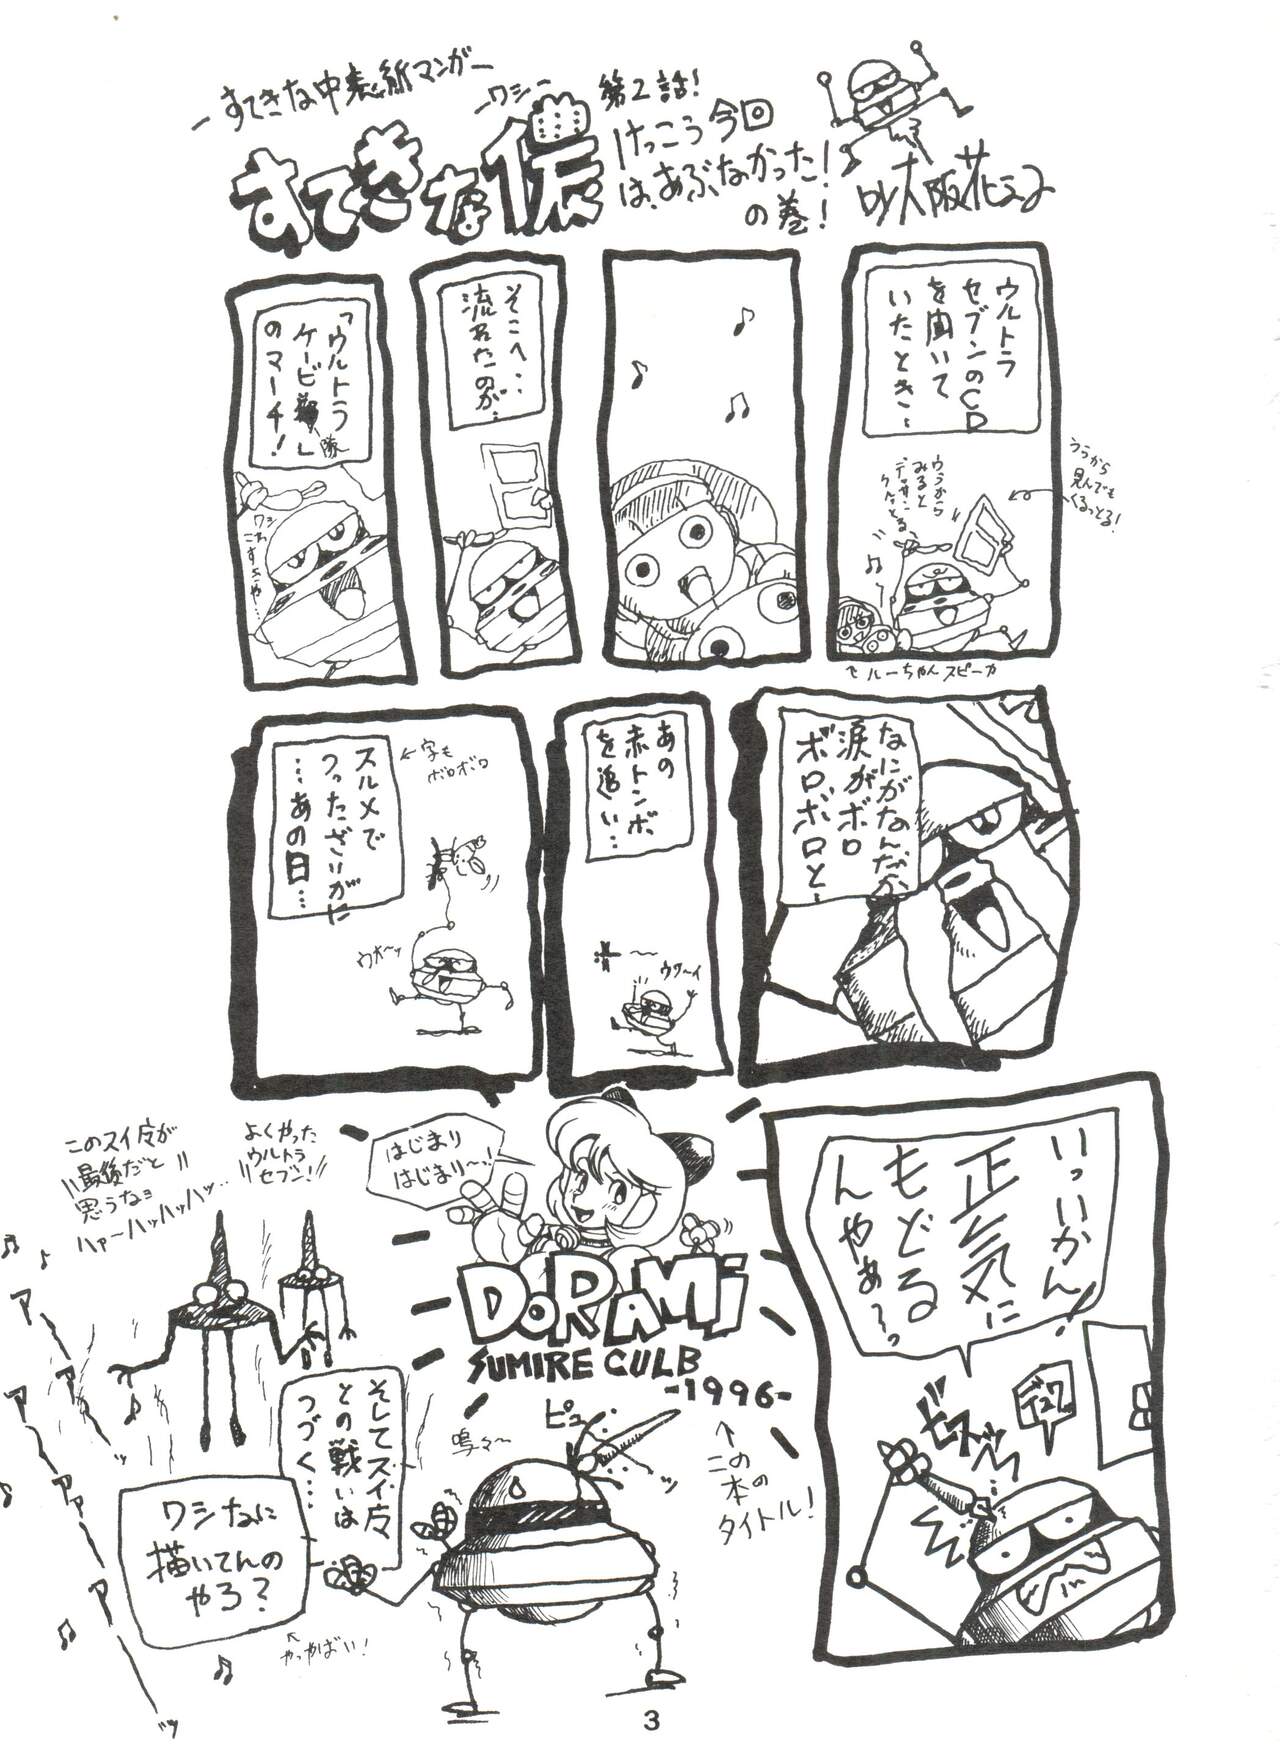 ーすてきな中表紙マンガー
すてきな儂
ーワシー
第2話!
けっこう今回
は、あぶなかった!
の巻!
by大阪花子
ウルトラ
セブンのCD
を聞いて
いたとき…
ウラから
みると
デッサン
クルッとる
うらから
見んでも
くるっとる!
ルーちゃんスピーカ
そこへ…
流れたのが…
「ウルトラ
ケービ隊」
のマーチ!
ワシ
これ
すきや…
なにがなんだか
涙がボロ
ボロボロと…
あの
赤トンボ
を追い…
ウワ〜イ
スルメで
つったざりがに
…あの日…
←字も
ボロボロ
ウオ〜ッ
いっいかん!
正気に
もどる
んやぁ〜っ
ビスッ
デュワ
はじまり
はじまり〜!
DORAMi
SUMIRE CULB
-1996-
↑この
本の
タイトル!
このスイ度が
最後だと
思うなョ
ハァーハッハッハッ…
よくやった
ウルトラ
セブン!
アーーーッ
アーーーッ
そしてスイ度
との戦いは
つづく…
ワシなに
描いてんの
やろ?
やっやばい!
鳴々〜
ピュー
ッ
3